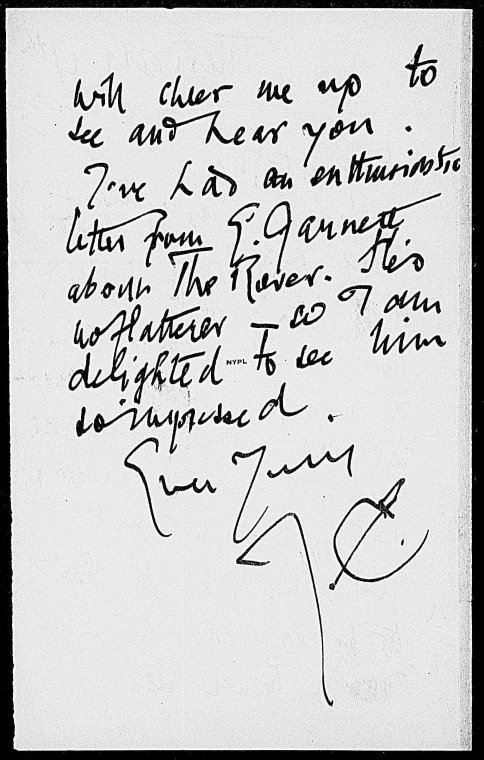 will cheer me up to
see and hear you.
I've had an enthusiastic
letter from E. Garnett
about The Rover. He is
no flatterer — so I am
delighted to see him
NYPL
so impressed.
Ever Yours
J. C.